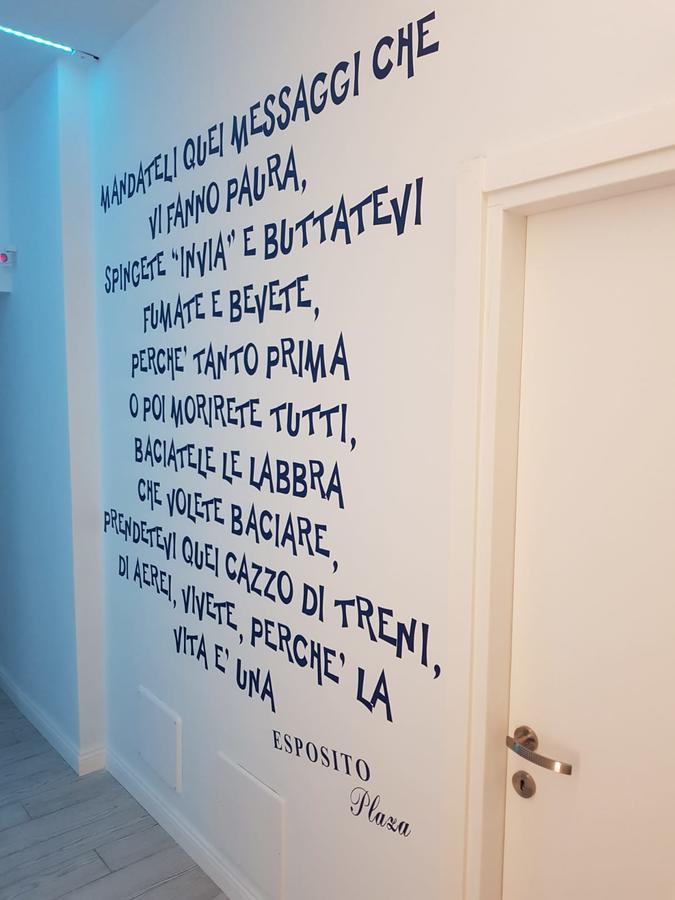 MANDATELI QUEI MESSAGGI CHE
VI FANNO PAURA,
SPINGETE "INVIA" E BUTTATEVI
FUMATE E BEVETE,
PERCHE' TANTO PRIMA
O POI MORIRETE TUTTI,
BACIATELE LE LABBRA
CHE VOLETE BACIARE,
PRENDETEVI QUEI CAZZO DI TRENI,
DI AEREI, VIVETE, PERCHE' LA
VITA E' UNA
ESPOSITO
Plaza